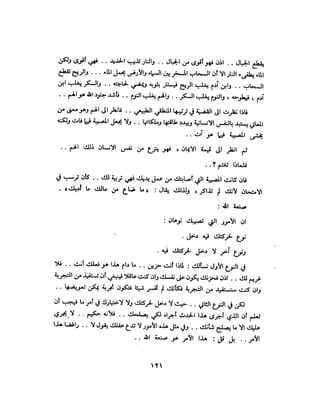 يقطع الجبال . . اذن فهو أقوى من الجبال . . والنار تذيب الحديد . . فهي أقوى ولكن
الماء يطفىء النار الا أن السحاب المسخر بين السماء والأرض يحمل الماء . . . والريح تقطع
السحاب . . وابن آدم يغلب الريح فيستتر بثوبه ويمضي لحاجته . . والسكر يغلب ابن
آدم ، فيطوحه ، والنوم يغلب السكر . . والهم يغلب النوم . . فأشد جنود الله هو الهم . .
فاذا نظرت الى القضية في ترتيبها المنطقي الطبيعي . . فانظر الى الهم وهو معنى من
المعاني يستبد بالنفس الانسانية ويبدد طاقتها وملكاتها . . ولا يحمل المصيبة فيما فات ولكنه
يخشى المصيبة فيما هو آت . .
ثم انظر الى قيمة الايمان ، فهو ينزع من نفس الانسان ذلك الهم . .
فلماذا تغتم ؟ . .
فان كانت المصيبة التي أصابتك من عمل يديك فهي تربية لك . . كأن ترسب في
الامتحان لأنك لم تذاكر ، ولذلك يقال : « ما ضاع من مالك ما أدبك » .
صنعة الله :
ان الأمور التي تصيبك نوعان :
نوع لحركتك فيه دخل .
ونوع آخر لا دخل لحركتك فيه .
في النوع الأول نسألك : لماذا أنت حزين . . ما دام هذا هو فعلك أنت . . فلا
غريم لك . . اذن فحزنك يكون على نفسك وان كنت عاقلا فينبغي أن تستفيد من التجربة
وان كنت ستستفيد من التجربة فكأنك لم تخسر شيئا فتكون تجربة يمكن تعويضها . .
لكن في النوع الثاني . . حيث لا دخل لحركتك ولا لاختيارك في أمر ما فيجب أن
تعلم أن الذي أجرى هذا الحدث أجراه لكي يصلحك . . فلأنه حكيم . . لا يجري
عليك الا ما يصلح شأنك . . وفي مثل هذه الأمور لا تدع عقلك يقول لا . . رافضا هذا
الأمر . . بل قل : هذا الأمر هو صنعة الله . .
١٢١